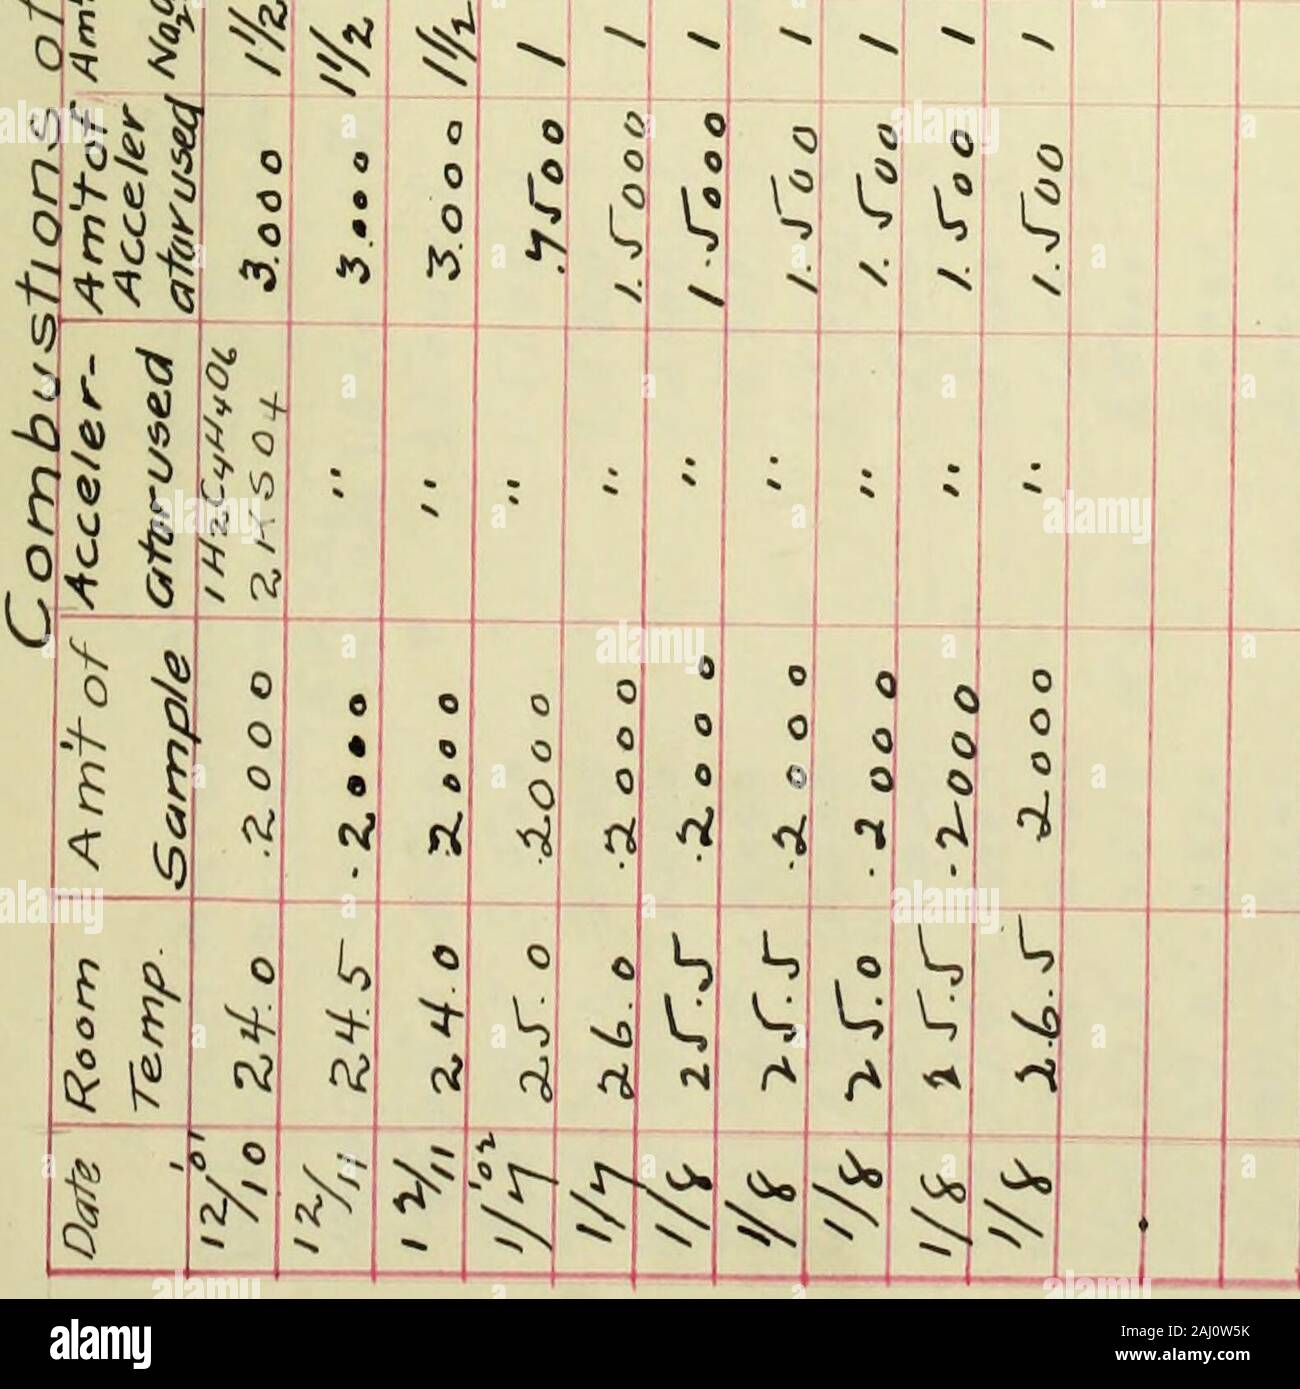 Combustions of
Date Room Temp. Am't of Sample Acceler-atorused Am't of Acceleratorused Amt Na2
12/10 '01 24.0 .2000 1H2C4H4O6 2KSO4 3.000 1 1/2
12/11 24.5 .2000 " 3.000 1 1/2
12/11 24.0 .2000 " 3.000 1 1/2
1/7 '02 25.0 .2000 " .7500 1
1/7 26.0 .2000 " 1.5000 1
1/8 25.5 .2000 " 1.5000 1
1/8 25.5 .2000 " 1.500 1
1/8 25.0 .2000 " 1.500 1
1/8 25.5 .2000 " 1.500 1
1/8 26.5 2000 " 1.500 1
alamy
Image ID: 2AJ0W5K
www.alamy.com